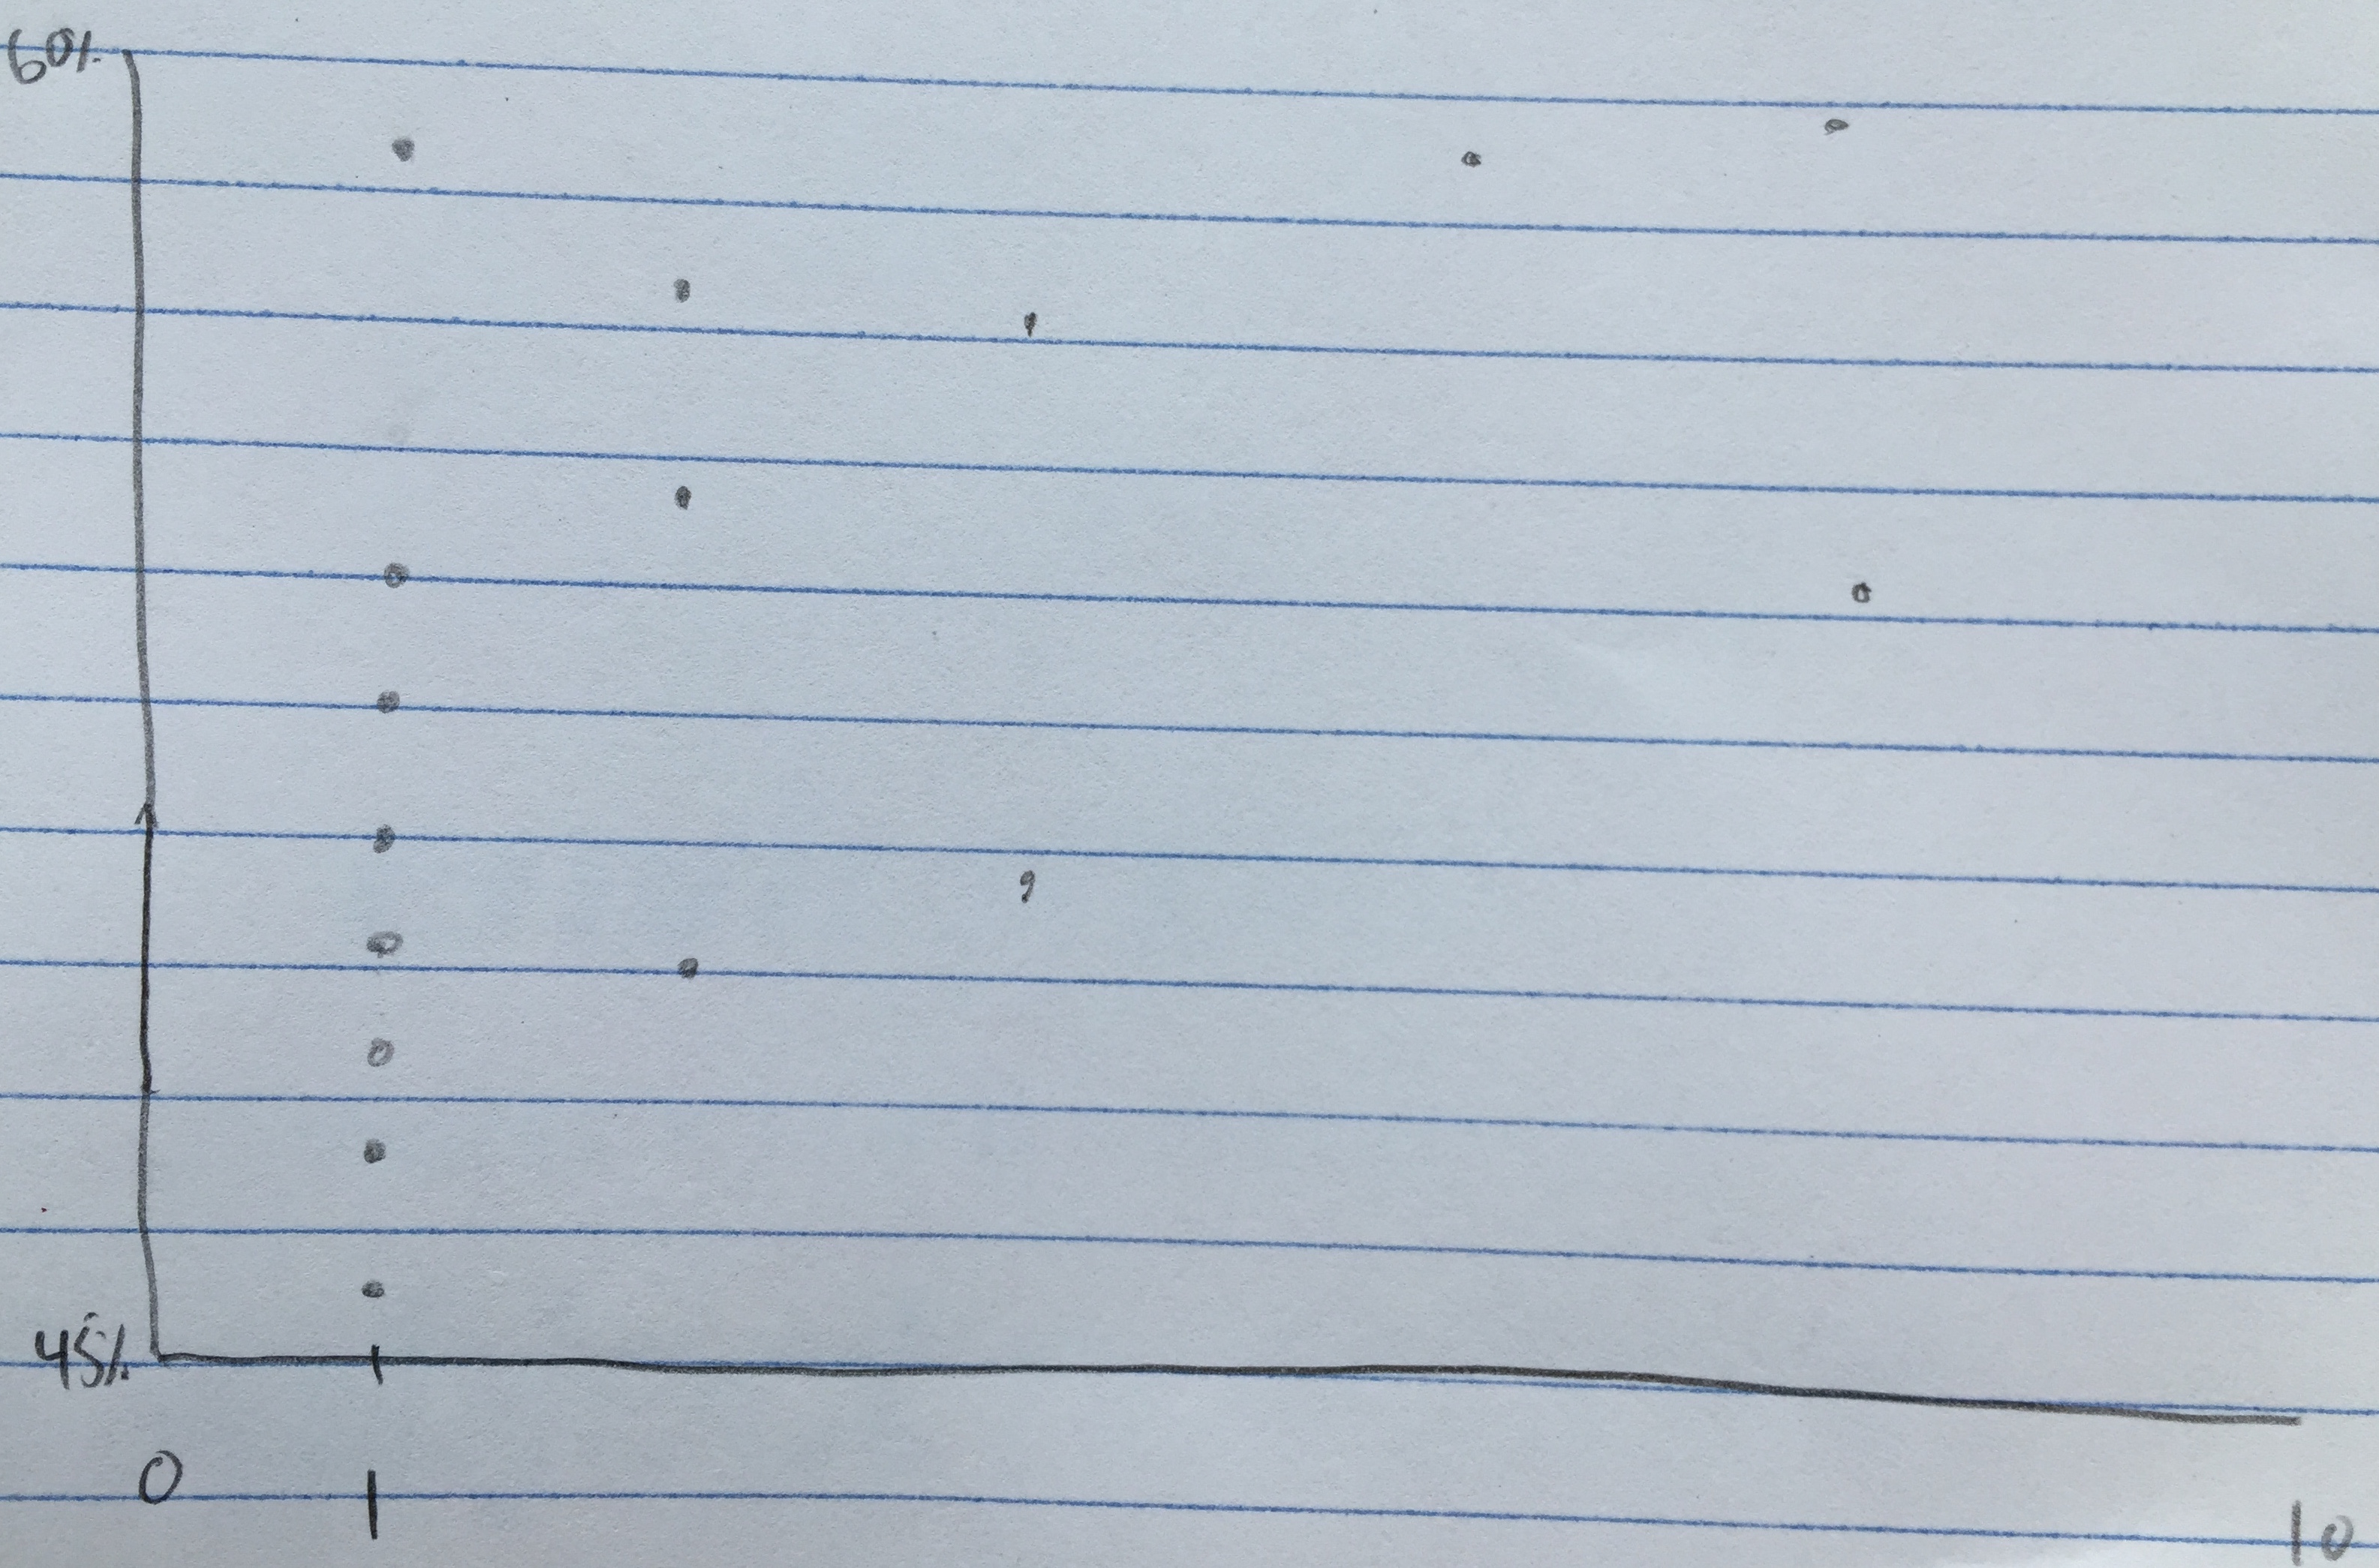 60%
45%
0 1 10